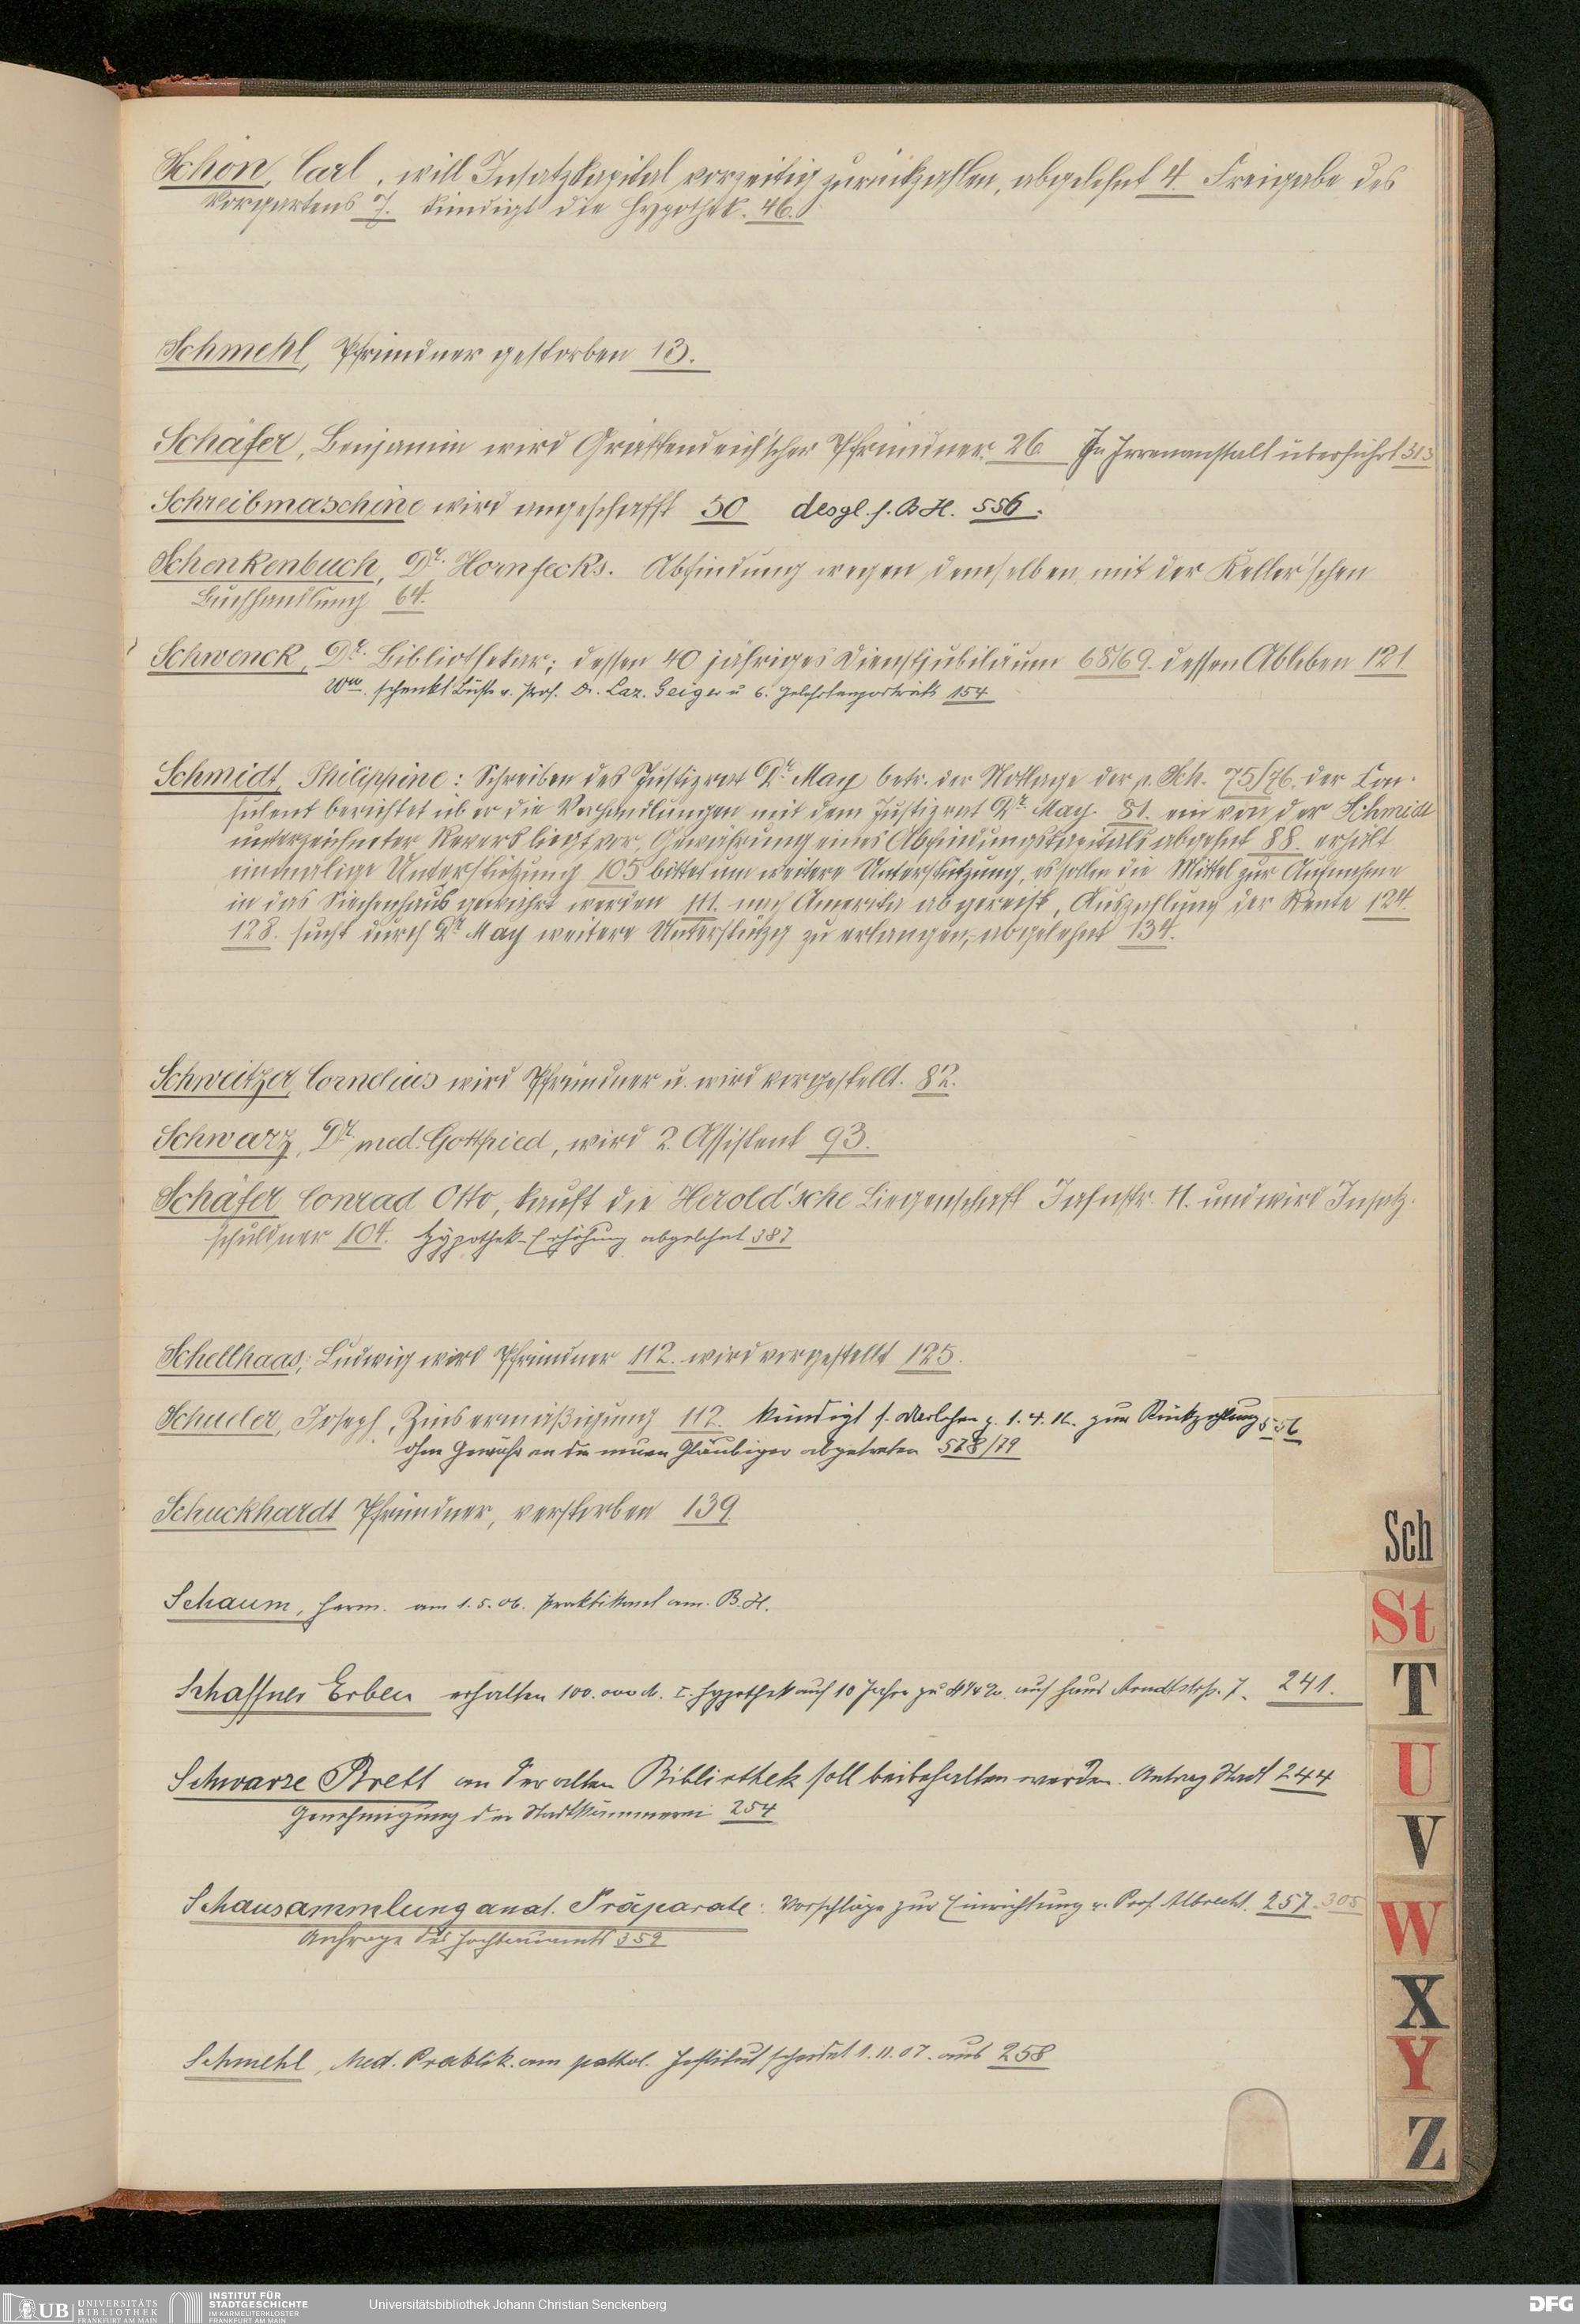 Schön, Carl, will Insatzkapital vorzeitig zurückzahlen, abgelehnt 4. Freigabe des
Vorgartens 7. kündigt die Hypothek. 46.
Schmehl, Pfründner gestorben 13.
Schäfer, Benjamin wird Gräffendeich'scher Pfründner. 26 In Irrenanstalt überführt 313
Schreibmaschine wird angeschafft 50 desgl. f. B.H. 556.
Schenkenbuch, Dr. Hornfecks. Abfindung wegen demselben mit der Keller'schen
Buchhandlung 64.
Schwenck, Dr. Bibliothekar; dessen 40 jähriges Dienstjubiläum 68/69. dessen Ableben 121
Wwe. schenkt Büste v. Prof. Dr. Laz. Geiger u 6. Gelehrtenporträts 154
Schmidt, Philippine: Schreiben des Justizrat Dr. May betr. der Notlage der p. Sch. 75/76. der Con-
sulent berichtet über die Verhandlungen mit dem Justizrat Dr. May. 81. ein von der Schmidt
unterzeichneter Revers liegt vor, Gewährung eines Abfindungskapitals abgelehnt 88. erhält
einmalige Unterstützung 105 bittet um weitere Unterstützung, es sollen die Mittel zur Aufnahme
in das Siechenhaus gewährt werden 111. nach Amerika abgereist, Auszahlung der Rente 124.
128. sucht durch Dr. May weitere Unterstützg zu erlangen, abgelehnt 134.
Schweitzer, Cornelius wird Pfründner u. wird vorgestellt. 82.
Schwarz, Dr. med. Gottfried, wird 2. Assistent 93.
Schäfer Conrad Otto, kauft die Herold'sche Liegenschaft Jahnstr. 11. und wird Insatz-
schuldner 104. Hypothek-Erhöhung abgelehnt 387
Schellhaas, Ludwig wird Pfründner 112. wird vorgestellt 125.
Schuder, Joseph, Zinsermäßigung 112. kündigt s. Darlehen z. 1.4.11. zur Rückzahlung 556
ohne Gewähr an den neuen Gläubiger abgetreten 578/79
Schuckhardt Pfründner, verstorben 139
Schaum, Herm. am 1.5.06. Praktikant am B.H.
Schaffner Erben erhalten 100.000 M. I. Hypothek auf 10 Jahre zu 4¼% auf Haus Arndtstrß. 7. 241.
Schwarze Brett an der alten Bibliothek soll beibehalten werden. Antrag Stadt 244
Genehmigung der Stadtkämmerei 254
Schausammlung anat. Präparate: Vorschläge zur Einrichtung v. Prof. Albrecht. 257. 305
Anfrage des Hochbauamts 359
Schmehl, Med. Praktik. am pathol. Institut scheidet 1.11.07. aus 258
Sch
St
T
U
V
W
X
Y
Z
UB UNIVERSITÄTS
BIBLIOTHEK
FRANKFURT AM MAIN
INSTITUT FÜR
STADTGESCHICHTE
IM KARMELITERKLOSTER
FRANKFURT AM MAIN
Universitätsbibliothek Johann Christian Senckenberg
DFG